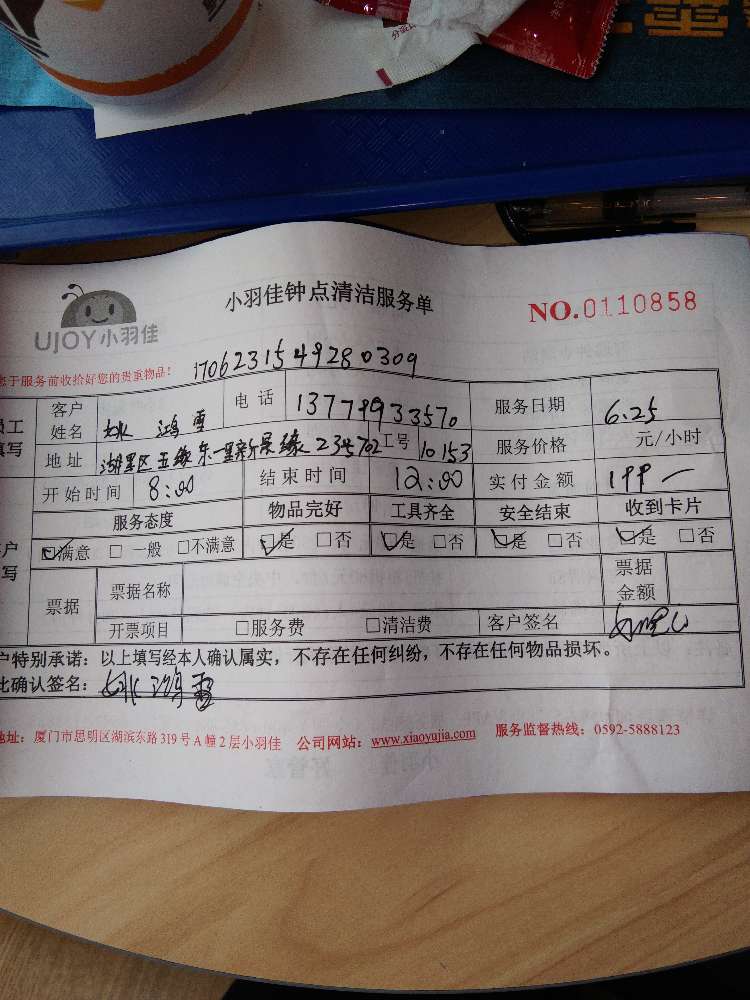 小羽佳钟点清洁服务单
NO.0110858
UJOY小羽佳
于服务前收拾好您的贵重物品!
1706231549280309
客户姓名 姚鸿雪 电话 服务日期 6.25
地址 湖里区五缘东一里新景缘 234702 工号 10153 服务价格 元/小时
开始时间 8:00 结束时间 12:00 实付金额 199一
服务态度 物品完好 工具齐全 安全结束 收到卡片
☑满意 □一般 □不满意 ☑是 □否 ☑是 □否 ☑是 □否 ☑是 □否
票据 票据名称 票据金额
开票项目 □服务费 □清洁费 客户签名
户特别承诺:以上填写经本人确认属实,不存在任何纠纷,不存在任何物品损坏。
此确认签名:姚鸿雪
地址:厦门市思明区湖滨东路319号A幢2层小羽佳 公司网站:www.xiaoyujia.com 服务监督热线:0592-5888123